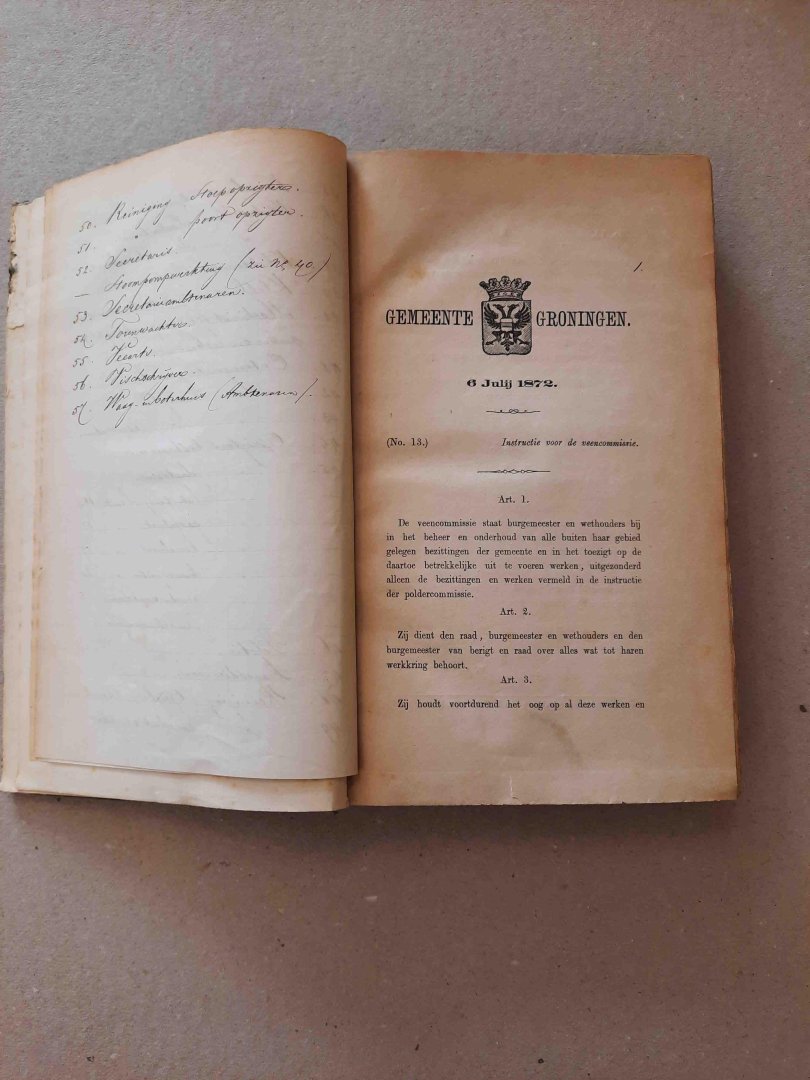 50. Reiniging Stoepopzigters.
51. " poort opzigter.
52. Secretaris.
— Stoompompwerktuig (zie No. 40.)
53. Secretarieambtenaren.
54. Torenwachters.
55. Veearts.
56. Vischschrijver.
57. Waag- en boterhuis (Ambtenaren).
1.
GEMEENTE GRONINGEN.
6 Julij 1872.
(No. 13.) Instructie voor de veencommissie.
Art. 1.
De veencommissie staat burgemeester en wethouders bij
in het beheer en onderhoud van alle buiten haar gebied
gelegen bezittingen der gemeente en in het toezigt op de
daartoe betrekkelijke uit te voeren werken, uitgezonderd
alleen de bezittingen en werken vermeld in de instructie
der poldercommissie.
Art. 2.
Zij dient den raad, burgemeester en wethouders en den
burgemeester van berigt en raad over alles wat tot haren
werkkring behoort.
Art. 3.
Zij houdt voortdurend het oog op al deze werken en